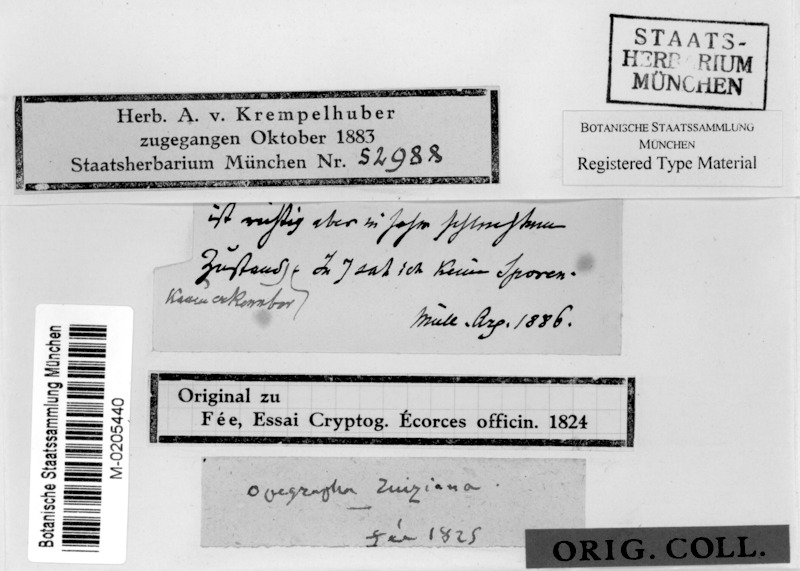 STAATS-
HERBARIUM
MÜNCHEN
Herb. A. v. Krempelhuber
zugegangen Oktober 1883
Staatsherbarium München Nr. 52988
BOTANISCHE STAATSSAMMLUNG
MÜNCHEN
Registered Type Material
ist richtig aber in sehr schlechtem
Zustand; in 7 sah ich keine Sporen.
Kaum erkennbar
Müll. Arg. 1886.
Botanische Staatssammlung München
M-0205440
Original zu
Fée, Essai Cryptog. Écorces officin. 1824
Opegrapha Ruiziana.
Fée 1825
ORIG. COLL.